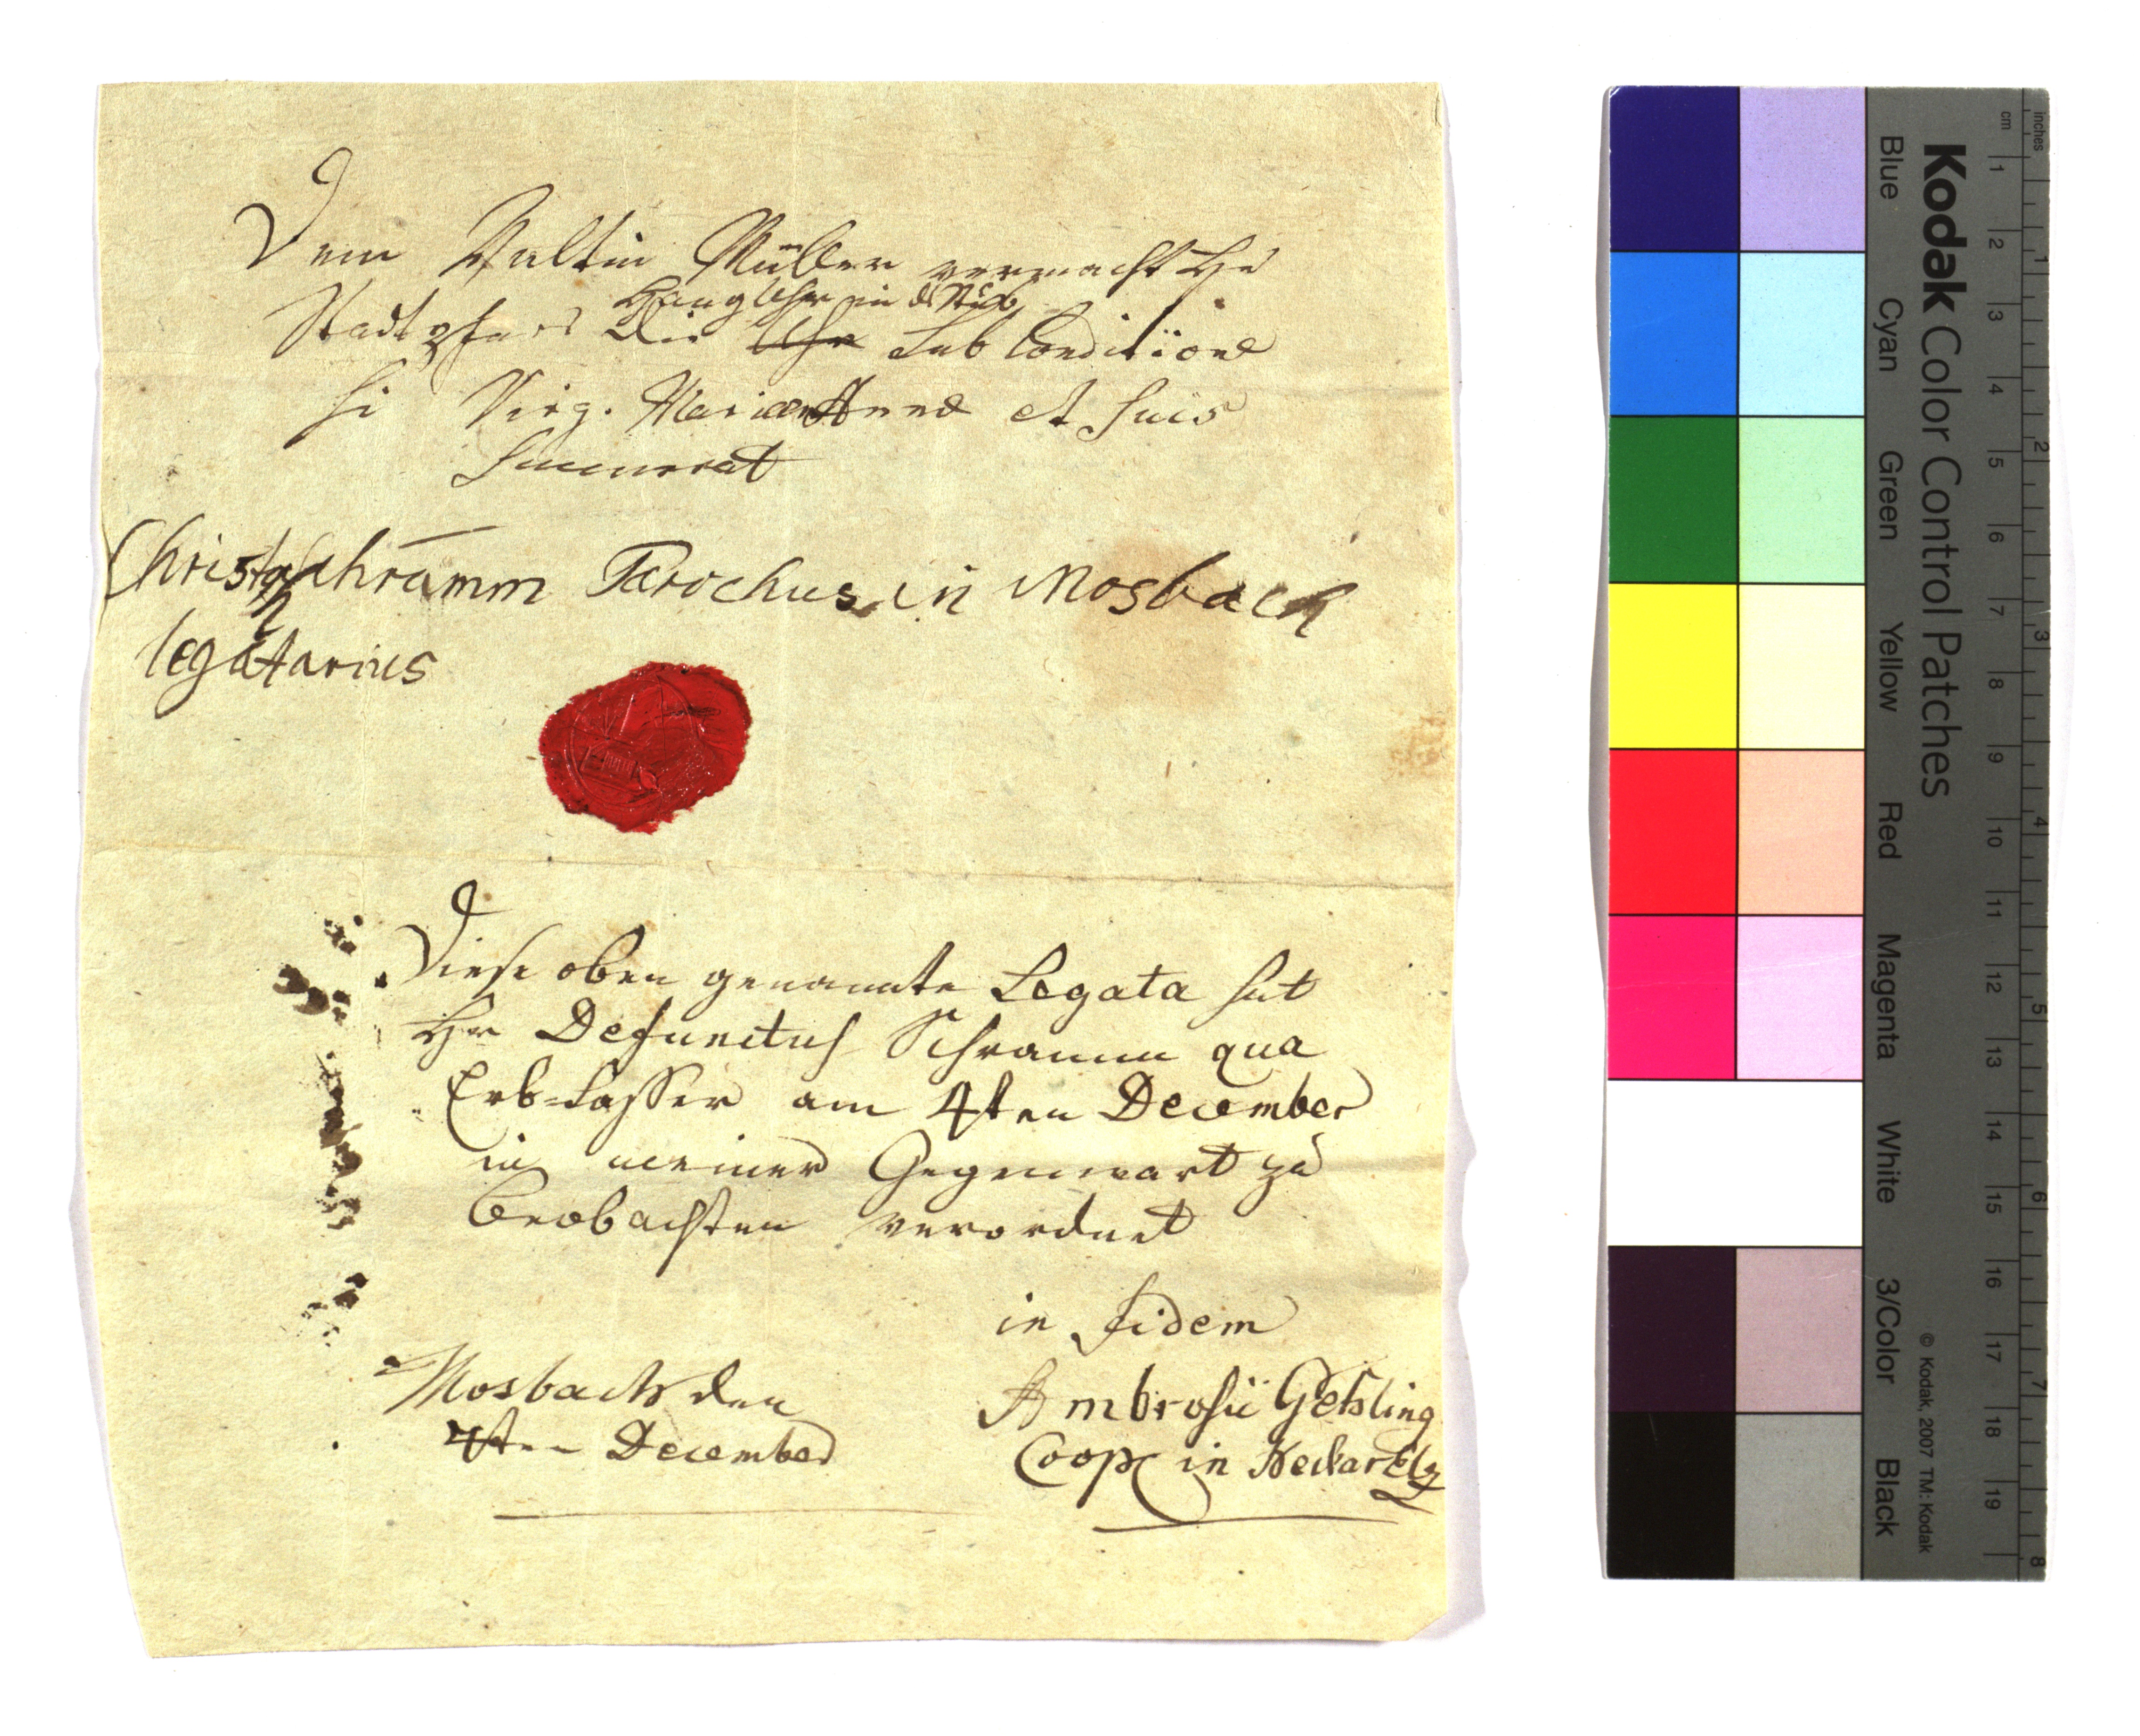 Dem Valtin Müller vermacht Hr
Stadtpfarr die Uhr Sub Conditione
Hanguhr in d Stub
si Virg. Mariae Annae et suis
succurrat
Christoph Schramm Parochus in Mosbach
legatarius
Diese oben genannte Legata hat
Hr Defunctus Schramm qua
Erb-Lasser am 4ten December
in meiner Gegenwart zu
beobachten verordnet
in fidem
Mosbach den
4ten December
Ambrosii
Coop in NeckarElz
Kodak Color Control Patches
Blue Cyan Green Yellow Red Magenta White 3/Color Black
© Kodak, 2007 TM: Kodak
cm 1 2 3 4 5 6 7 8 9 10 11 12 13 14 15 16 17 18 19
inches 1 2 3 4 5 6 7 8